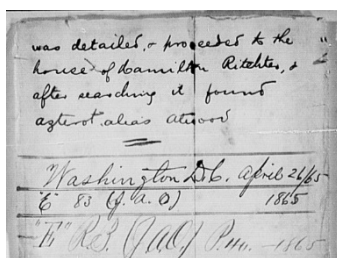 was detailed, & proceeded to the
house of Hamilton Ritchter, &
after searching it found
azterot. alias atwood
Washington D.C. April 26/65
"E" 83 (J. A. O) 1865
"E" R.B. (JAO) P. 1865